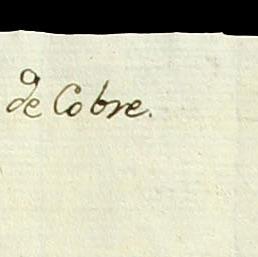 de Cobre.